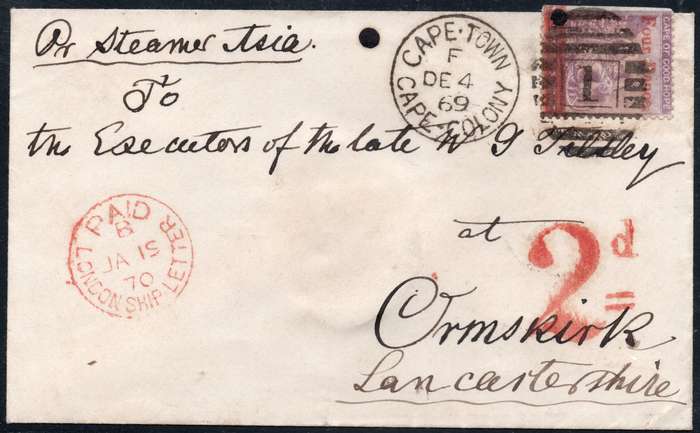 Pr Steamer Asia.
CAPE·TOWN
F
DE 4
69
CAPE-COLONY
CAPE OF GOOD HOPE
FOUR
1
To
the Executors of the late W G
PAID
B
JA 15
70
LONDON SHIP LETTER
at
2d
Ormskirk
Lancastershire